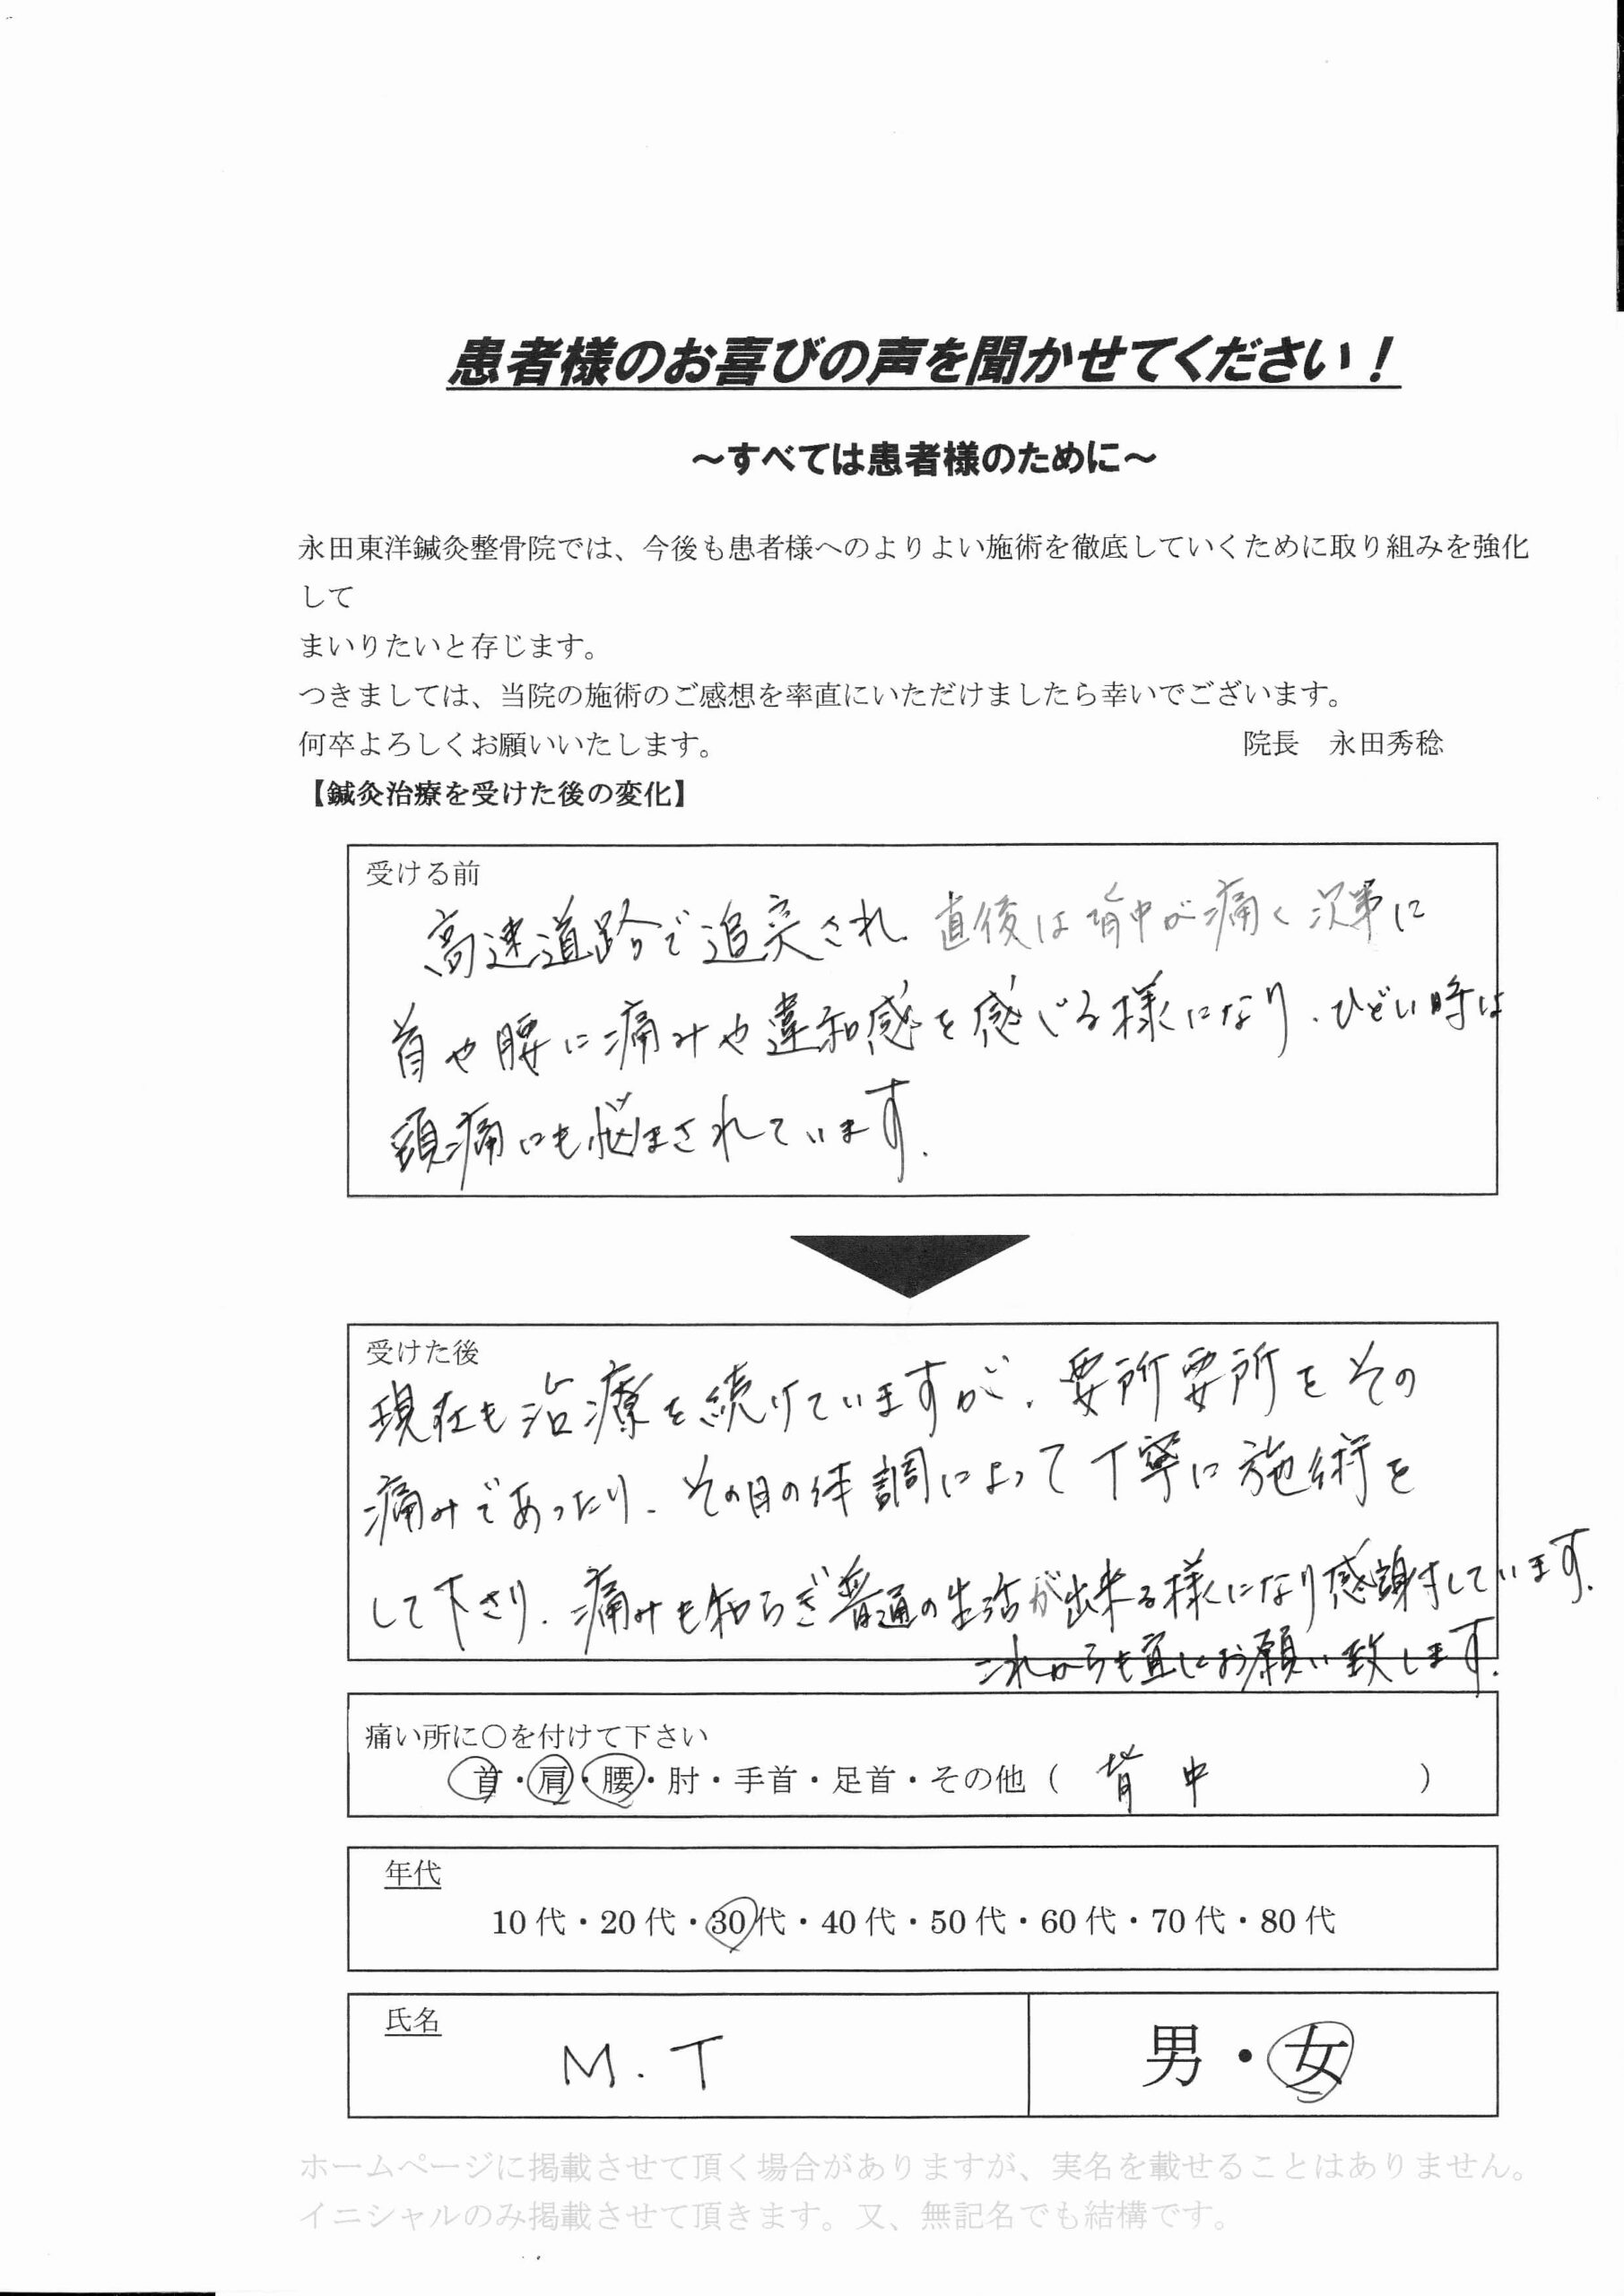 患者様のお喜びの声を聞かせてください！
～すべては患者様のために～
永田東洋鍼灸整骨院では、今後も患者様へのよりよい施術を徹底していくために取り組みを強化
して
まいりたいと存じます。
つきましては、当院の施術のご感想を率直にいただけましたら幸いでございます。
何卒よろしくお願いいたします。 院長 永田秀稔
【鍼灸治療を受けた後の変化】
受ける前
高速道路で追突され、直後は背中が痛く次第に
首や腰に痛みや違和感を感じる様になり、ひどい時は
頭痛にも悩まされています。
受けた後
現在も治療を続けていますが、要所要所をその
痛みであったり、その日の体調によって丁寧に施術を
して下さり、痛みも和らぎ普通の生活が出来る様になり感謝しています。
これからも宜しくお願い致します。
痛い所に○を付けて下さい
首・肩・腰・肘・手首・足首・その他（ 背中 ）
年代
10代・20代・30代・40代・50代・60代・70代・80代
氏名
M.T 男・女
ホームページに掲載させて頂く場合がありますが、実名を載せることはありません。
イニシャルのみ掲載させて頂きます。又、無記名でも結構です。